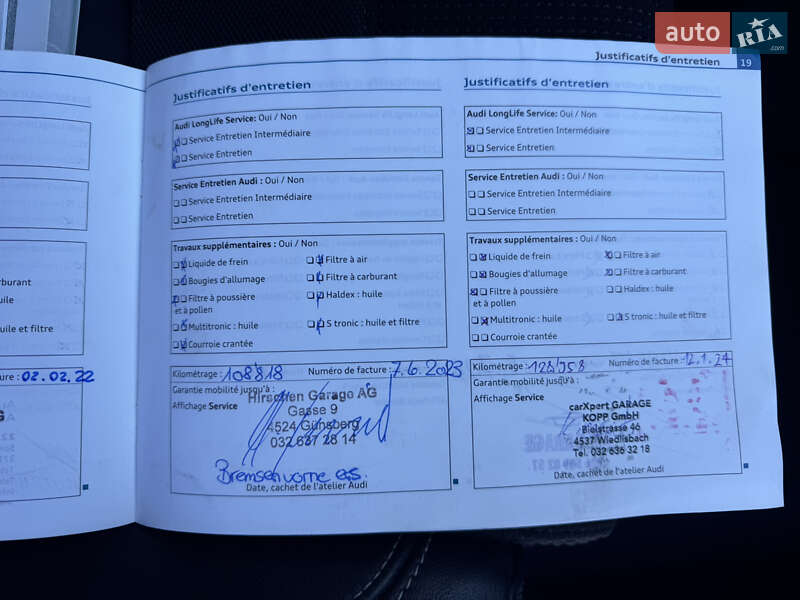 auto RIA .com
Justificatifs d'entretien 19
arburant
uile
uile et filtre
ure : 02.02.22
Justificatifs d'entretien
Audi LongLife Service: Oui / Non
Service Entretien Intermédiaire
Service Entretien
Service Entretien Audi : Oui / Non
Service Entretien Intermédiaire
Service Entretien
Travaux supplémentaires : Oui / Non
Liquide de frein
Filtre à air
Bougies d'allumage
Filtre à carburant
Filtre à poussière
et à pollen
Haldex : huile
Multitronic : huile
S tronic : huile et filtre
Courroie crantée
Kilométrage : 108'818 Numéro de facture : 7.6.2023
Garantie mobilité jusqu'à :
Affichage Service
Hirschen Garage AG
Gasse 9
4524 Günsberg
032 637 28 14
Bremsen vorne es.
Date, cachet de l'atelier Audi
Justificatifs d'entretien
Audi LongLife Service: Oui / Non
Service Entretien Intermédiaire
Service Entretien
Service Entretien Audi : Oui / Non
Service Entretien Intermédiaire
Service Entretien
Travaux supplémentaires : Oui / Non
Liquide de frein
Filtre à air
Bougies d'allumage
Filtre à carburant
Filtre à poussière
et à pollen
Haldex : huile
Multitronic : huile
S tronic : huile et filtre
Courroie crantée
Kilométrage : 128'958 Numéro de facture : 12.1.24
Garantie mobilité jusqu'à :
Affichage Service
carXpert GARAGE
KOPP GmbH
Bielstrasse 46
4537 Wiedlisbach
Tel. 032 636 32 18
Date, cachet de l'atelier Audi